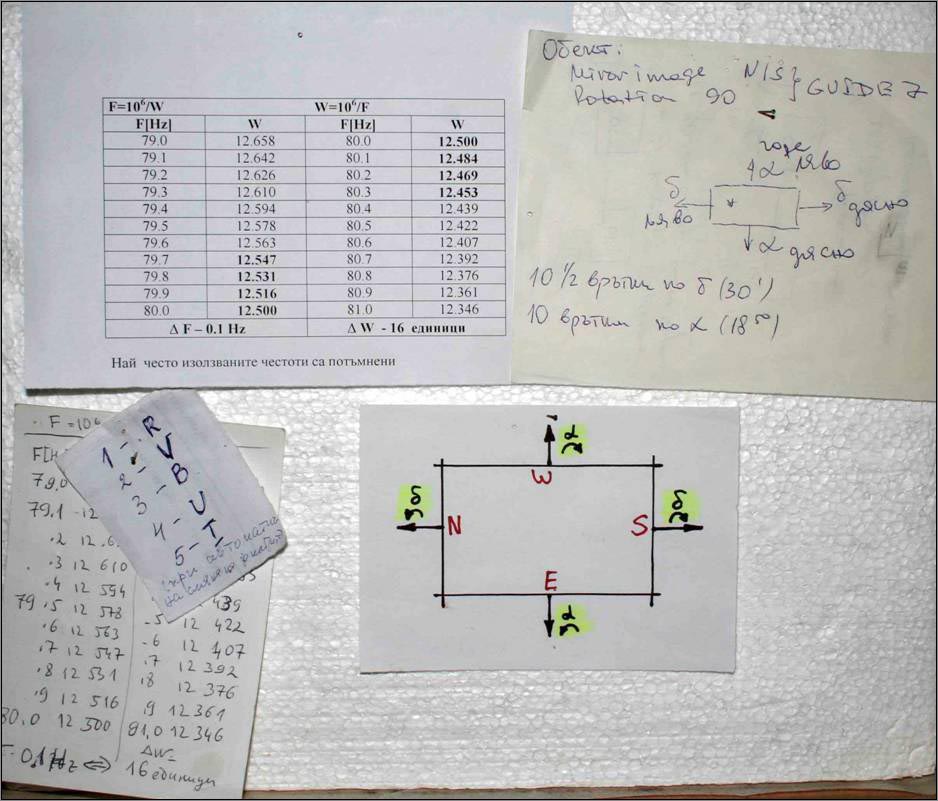 F=10⁶/W W=10⁶/F
F[Hz] W F[Hz] W
79.0 12.658 80.0 12.500
79.1 12.642 80.1 12.484
79.2 12.626 80.2 12.469
79.3 12.610 80.3 12.453
79.4 12.594 80.4 12.439
79.5 12.578 80.5 12.422
79.6 12.563 80.6 12.407
79.7 12.547 80.7 12.392
79.8 12.531 80.8 12.376
79.9 12.516 80.9 12.361
80.0 12.500 81.0 12.346
Δ F – 0.1 Hz Δ W - 16 единици
Най често изолзваните честоти са потъмнени
Обект:
Miror image N/S} GUIDE 7
Rotation 90
горе
α ляво
δ
ляво
δ дясно
α дясно
10 1/2 врътки по δ (30')
10 врътки по α (18⁵⁰)
F = 10⁶
F[H
79.0
79.1 12
.2 12.6
.3 12 610
.4 12 594
79 .5 12 578
.6 12 563
.7 12 547
.8 12 531
.9 12 516
80.0 12 500
0.1Hz <=>
439
.5 12 422
.6 12 407
.7 12 392
.8 12 376
.9 12 361
81.0 12 346
ΔW=
16 единици
1 - R
2 - V
3 - B
4 - U
5 - I
при автомат
на смяна на филт
W
N
S
E